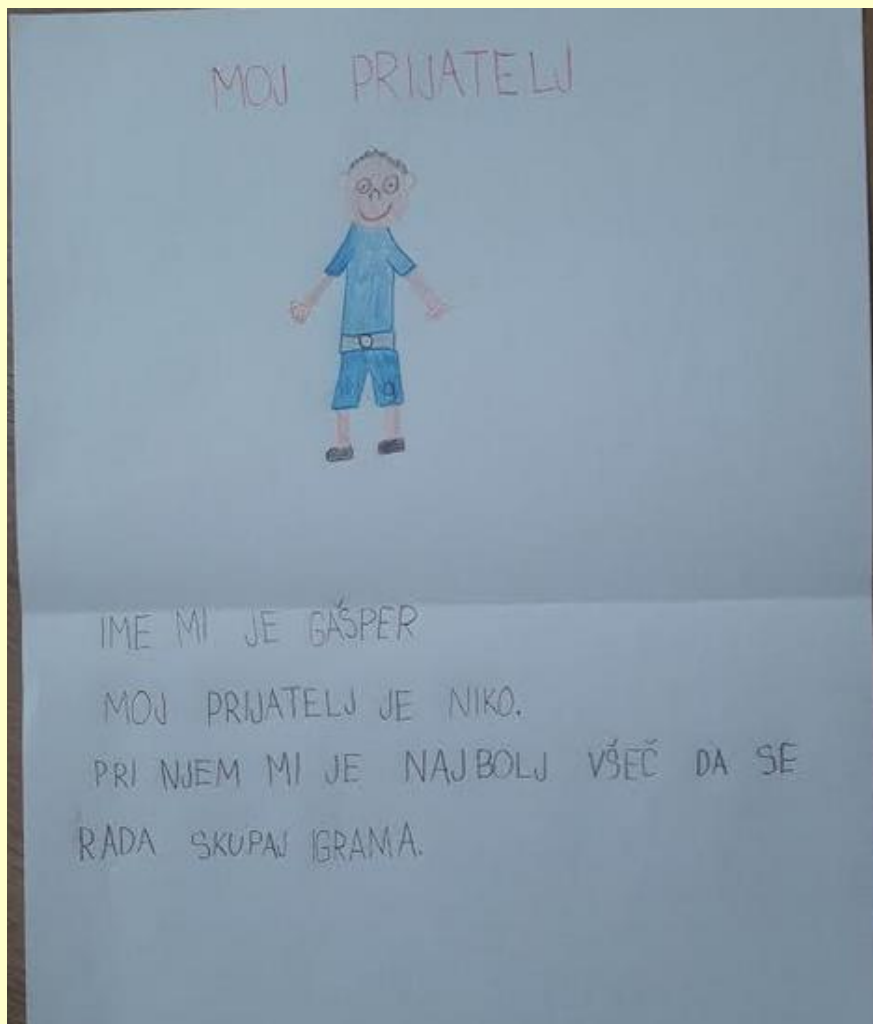 MOJ PRIJATELJ
IME MI JE GAŠPER
MOJ PRIJATELJ JE NIKO.
PRI NJEM MI JE NAJBOLJ VŠEČ DA SE
RADA SKUPAJ IGRAMA.